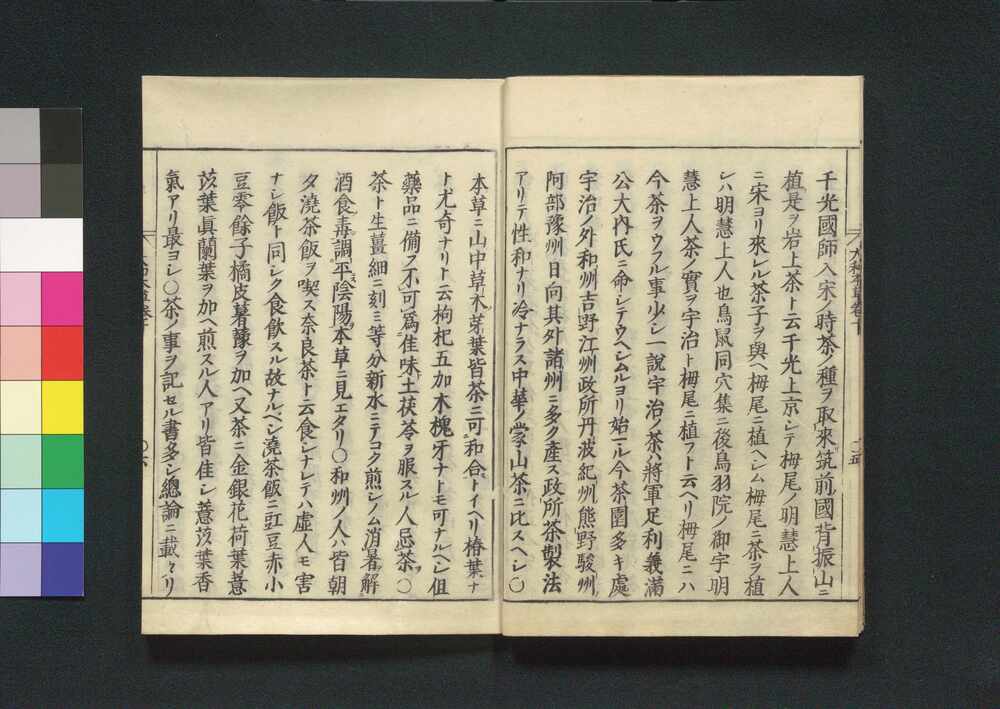 千光國師入宋ノ時茶ノ種ヲ取來筑前國背振山ニ
植是ヲ岩上茶ト云千光上京シテ栂尾ノ明慧上人
ニ宋ヨリ來レル茶子ヲ與ヘ栂尾ニ植ヘシム栂尾ニ茶ヲ植
シハ明慧上人也鳥鼠同穴集ニ後鳥羽院ノ御宇明
慧上人茶ノ實ヲ宇治ト栂尾ニ植フト云ヘリ栂尾ニハ
今茶ヲウフル事少シ一說宇治ノ茶ハ將軍足利義滿
公大內氏ニ命シテウヘシムルヨリ始マル今茶園多キ處
宇治ノ外和州吉野江州政所丹波紀州熊野駿州
阿部豫州日向其外諸州ニ多ク產ス政所茶製法
アリテ性和ナリ冷ナラス中華ノ蒙山茶ニ比スヘシ○
本草ニ山中草木芽葉皆茶ニ可和合トイヘリ椿葉ナ
ト尤奇ナリト云枸杞五加木槐牙ナトモ可ナルヘシ但
藥品ニ備フ不可爲佳味土茯苓ヲ服スル人忌茶○
茶ト生薑細ニ刻ミ等分新水ニテコク煎シノム消暑解
酒食毒調平陰陽本草ニ見エタリ○和州ノ人ハ皆朝
夕澆茶飯ヲ喫ス奈良茶ト云食シナレテハ虛人モ害
ナシ飯ト同シク食飲スル故ナルヘシ澆茶飯ニ豇豆赤小
豆零餘子橘皮薯蕷ヲ加ヘ又茶ニ金銀花荷葉薏
苡葉眞蘭葉ヲ加ヘ煎スル人アリ皆佳シ薏苡葉香
氣アリ最ヨシ○茶ノ事ヲ記セル書多シ總論ニ載タリ